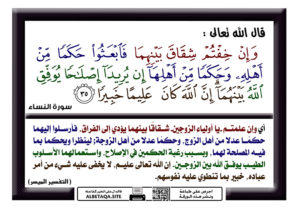 قال الله تعالى :
وَإِنْ خِفْتُمْ شِقَاقَ بَيْنِهِمَا فَابْعَثُوا حَكَمًا مِّنْ
أَهْلِهِ وَحَكَمًا مِّنْ أَهْلِهَا إِن يُرِيدَا إِصْلَاحًا يُوَفِّقِ
اللَّهُ بَيْنَهُمَا إِنَّ اللَّهَ كَانَ عَلِيمًا خَبِيرًا ٣٥
سورة النساء
أي وإن علمتم -يا أولياء الزوجين- شقاقا بينهما يؤدي إلى الفراق، فأرسلوا إليهما
حكما عدلا من أهل الزوج، وحكما عدلا من أهل الزوجة؛ لينظرا ويحكما بما
فيه المصلحة لهما، وبسبب رغبة الحكمين في الإصلاح، واستعمالهما الأسلوب
الطيب يوفق الله بين الزوجين. إن الله تعالى عليم، لا يخفى عليه شيء من أمر
عباده، خبير بما تنطوي عليه نفوسهم.
( التفسير الميسر )
احرص على طباعة
ونشر هذه البطاقة
ALBETAQA.SITE